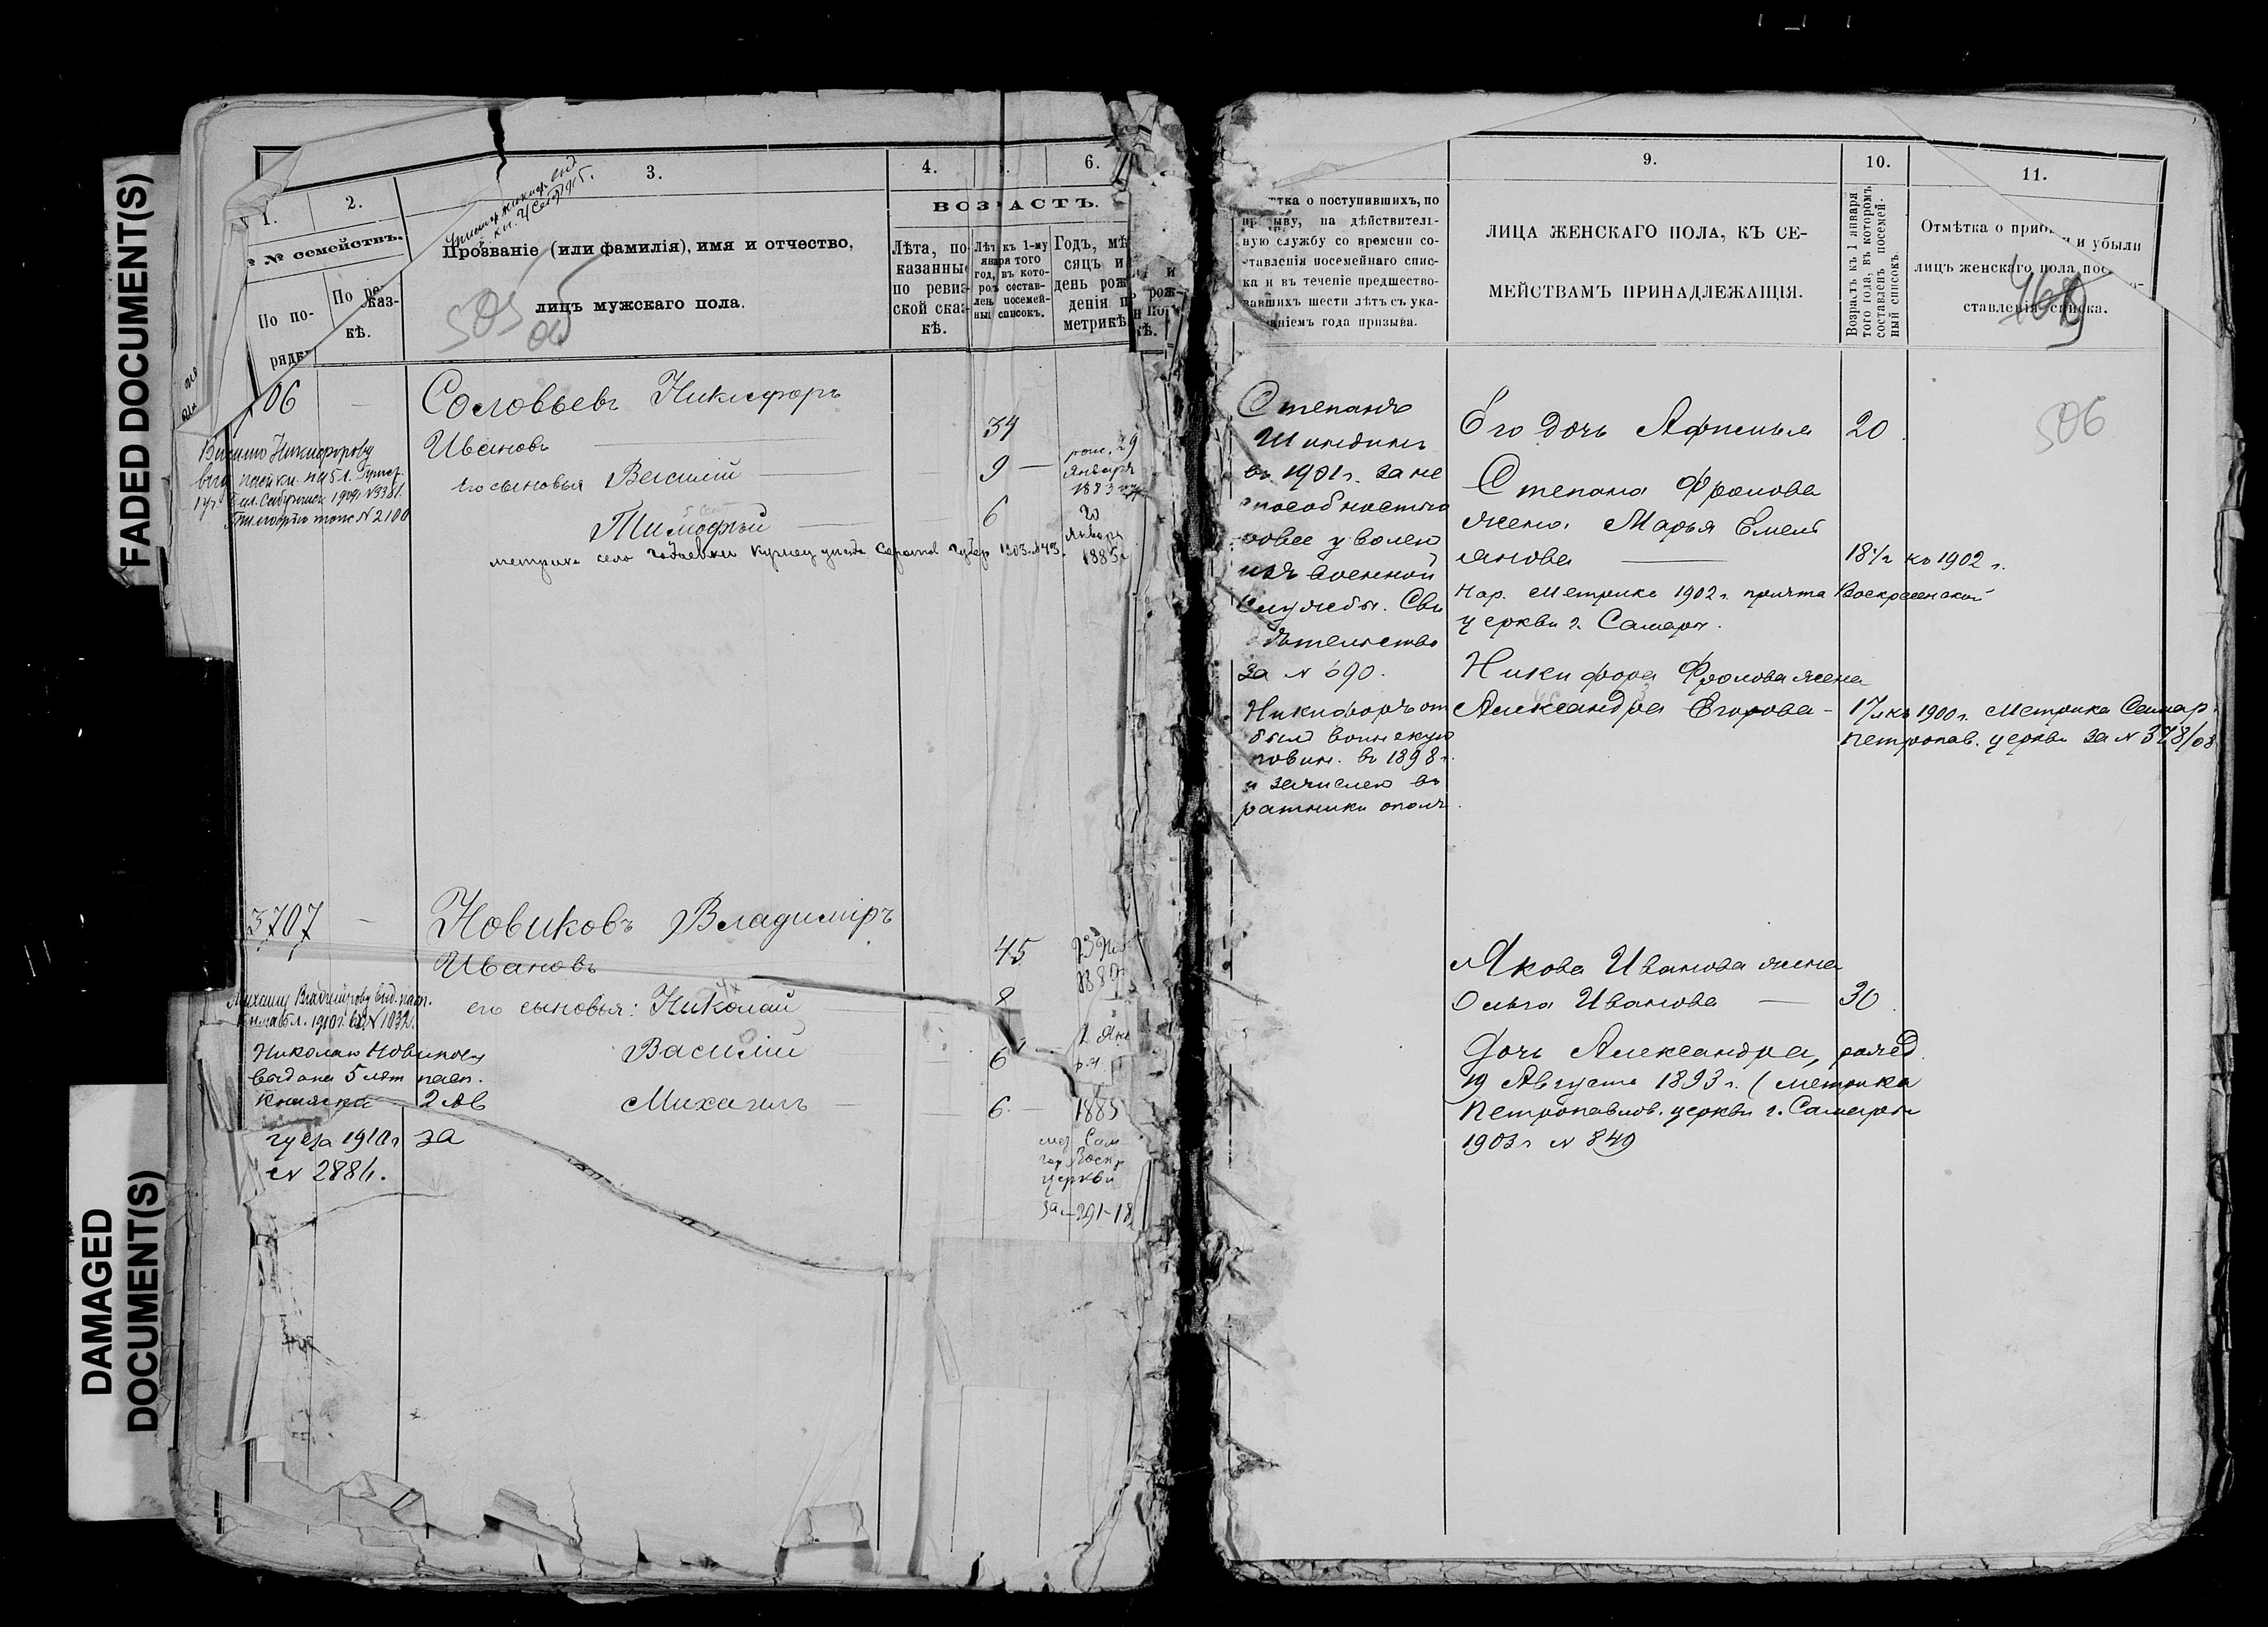 FADED DOCUMENT(S)
DAMAGED
DOCUMENT(S)
1.
2.
3.
4.
6.
№ семействъ.
По по-
рядку
По ре-
сказ-
кѣ.
Прозваніе (или фамилія), имя и отчество,
лицъ мужскаго пола.
505
ВОЗРАСТЪ.
Лѣта, по-
казанные
по ревиз-
ской сказ-
кѣ.
Лѣт къ 1-му
января того
год, въ кото-
ром состав-
лен посемей-
ный списокъ.
Годъ, мѣ-
сяцъ и
день рож-
денія по
метрикѣ
06
Соловьевъ Никифоръ
Ивановъ
34
его сыновья Василій
9
января
1883
Тимофѣй
6
20
Января
1885
метрика село Кузнец уѣзда Сарат губер 1903 №43.
Василію Никифорову
Тимофѣю №2100
3707
Новиковъ Владиміръ
Ивановъ
45
его сыновья: Николай
8
Василій
6
Михаилъ
6
1885
Сам
церкви
за 291-18
Михаилу Владимірову выд. пасп.
1910 г. №1032.
Николаю Новикову
выдана 5 лѣт пасп.
книжка 2 Ав
густа 1910 г за
№ 2884.
9.
10.
11.
тка о поступившихъ, по
призыву, на дѣйствитель-
ную службу со времени со-
ставленія посемейнаго спис-
ка и въ теченіе предшество-
вавшихъ шести лѣтъ съ ука-
заніемъ года призыва.
ЛИЦА ЖЕНСКАГО ПОЛА, КЪ СЕ-
МЕЙСТВАМЪ ПРИНАДЛЕЖАЩІЯ.
Возрастъ къ 1 января
того года, въ которомъ
составленъ посемей-
ный списокъ.
Отмѣтка о приб и убыли
лицъ женскаго пола пос
ставленія списка.
506
Степанъ
въ 1901 г. за не
способностью
вовсе уволен
изъ военной
службы. Сви
дѣтельство
за № 690.
Никифоръ от
былъ воинскую
повин. въ 1898 г.
и зачислен въ
ратники ополч.
Его дочь Афимья
20
Степана Фролова
жена Марья Емель
янова
18 л къ 1902 г.
метрика 1902 г. причта Воскресенской
церкви г. Самары.
Никифора Фролова жена
Александра Егорова
17 л къ 1900 г. Метрика Самар.
Петропав. церкви за № 378/08
Якова Иванова жена
Ольга Иванова
30
Дочь Александра, рожд.
19 Августа 1893 г. (метрика
Петропавлов. церкви г. Самары
1903 г № 849